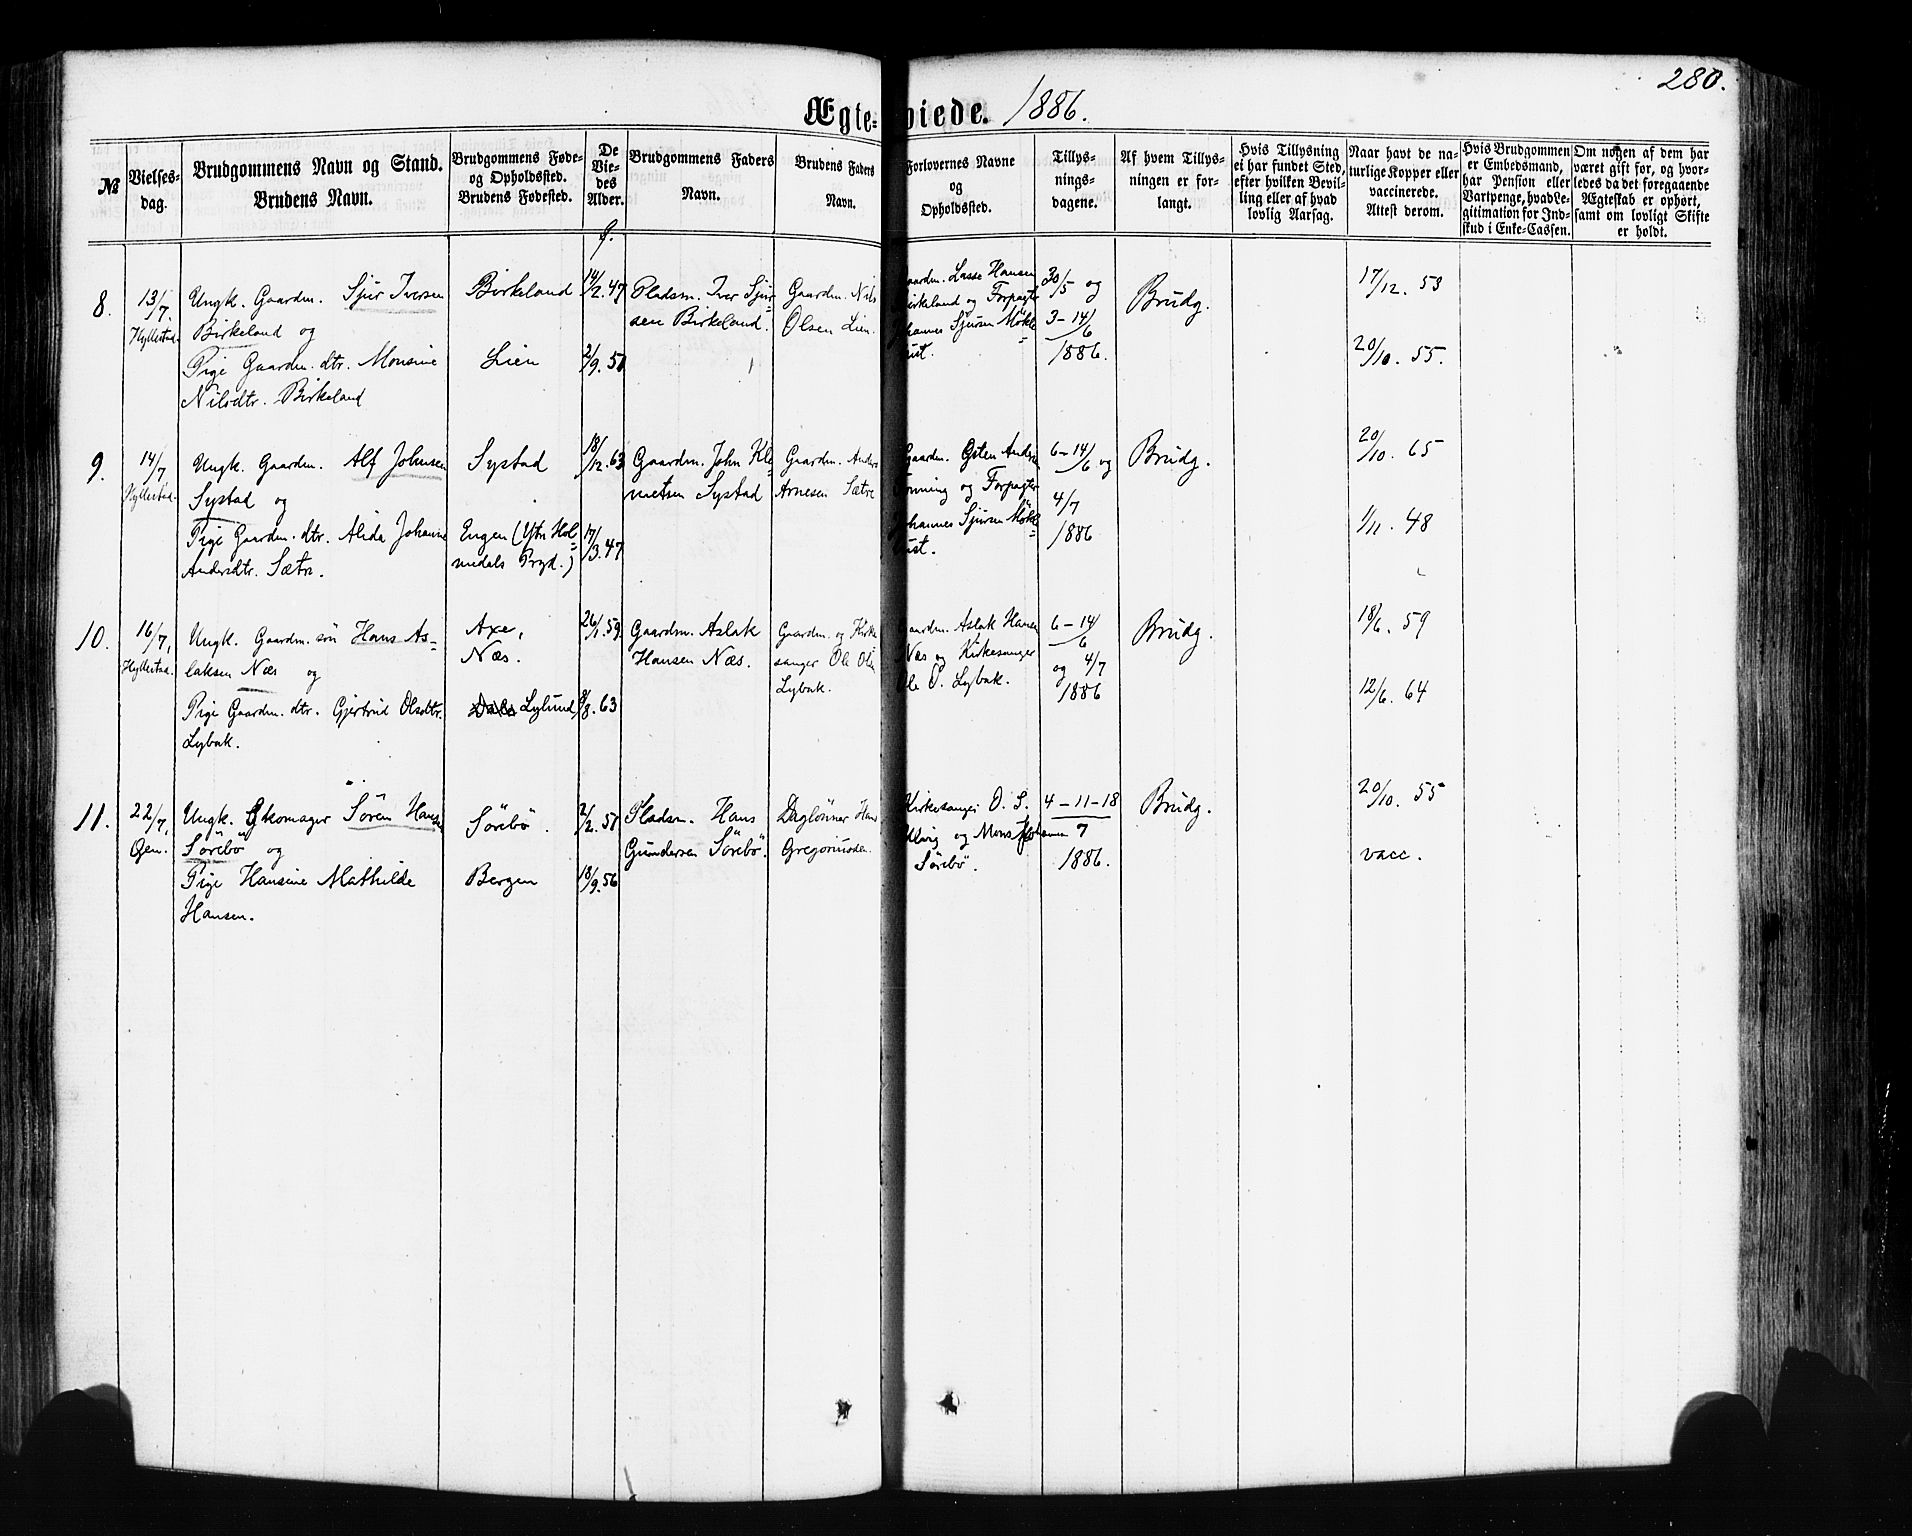 280.
Ægte-viede. 1886.
№
Vielses-
dag.
Brudgommens Navn og Stand.
Brudens Navn.
Brudgommens Føde-
og Opholdssted.
Brudens Fødested.
De
Vie-
des
Alder.
f.
Brudgommens Faders
Navn.
Brudens Faders
Navn.
Forlovernes Navne
og
Opholdssted.
Tillys-
nings-
dagene.
Af hvem Tillys-
ningen er for-
langt.
Hvis Tillysning
ei har fundet Sted,
efter hvilken Bevil-
ling eller af hvad
lovlig Aarsag.
Naar havt de na-
turlige Kopper eller
vaccinerede.
Attest derom.
Hvis Brudgommen
er Embedsmand,
har Pension eller
Vartpenge, hvad Le-
gitimation for Ind-
skud i Enke-Cassen.
Om nogen af dem har
været gift før, og hvor-
ledes da det foregaaende
Ægteskab er ophørt,
samt om lovligt Skifte
er holdt.
8.
13/7.
Hyllestad.
Ungk. Gaardm. Sjur Iversen
Birkeland og
Pige Gaardm. dtr. Monsine
Nilsdtr. Birkeland
Birkeland
Lien
14/2. 47
2/9. 51
Pladsm. Iver Sjur-
sen Birkeland.
Gaardm. Nils
Olsen Lien.
aardm. Lasse Hansen
irkeland og Forpagter
hannes Sjursen Mökle-
ust.
30/5 og
3-14/6
1886.
Brudg.
17/12. 53
20/10. 55.
9.
14/7
Hyllestad.
Ungk. Gaardm. Alf Johnsen
Systad og
Pige Gaardm. dtr. Alida Johanne
Andersdtr. Sætre.
Systad
Engen (Ytri Hol-
medals Prgd.)
18/12. 63
17/3. 47
Gaardm. John Kle-
metsen Systad
Gaardm. Anders
Arnesen Sætre
Gaardm. Gsten Andr
nning og Forpagter
hannes Sjursen Mökle-
ust.
6-14/6 og
4/7
1886
Brudg.
20/10. 65
1/11. 48
10.
16/7,
Hyllestad.
Ungk. Gaardm. sön Hans As-
laksen Næs og
Pige Gaardm. dtr. Gjertrud Olsdttr.
Lybæk.
Axe,
Næs.
Lylund
26/1. 59.
8. 63
Gaardm. Aslak
Hansen Næs.
Gaardm. og Kirke-
sanger Ole Olsen
Lybæk.
aardm. Aslak Hansen
Næs og Kirkesanger
Ole O. Lybæk.
6-14/6
og 4/7
1886
Brudg.
18/6. 59
12/6. 64
11.
22/7,
Öen.
Ungk. Skomager Sören Hansen
Sörebö og
Pige Hansine Mathilde
Hansen.
Sörebö.
Bergen
2/2. 51
18/9. 56
Pladsm. Hans
Gundersen Sörebö.
Daglönner Hans
Gregoriussen
Kirkesanger O. S.
og Mons
Sörebö.
4-11-18
7
1886.
Brudg.
20/10. 55
vacc.